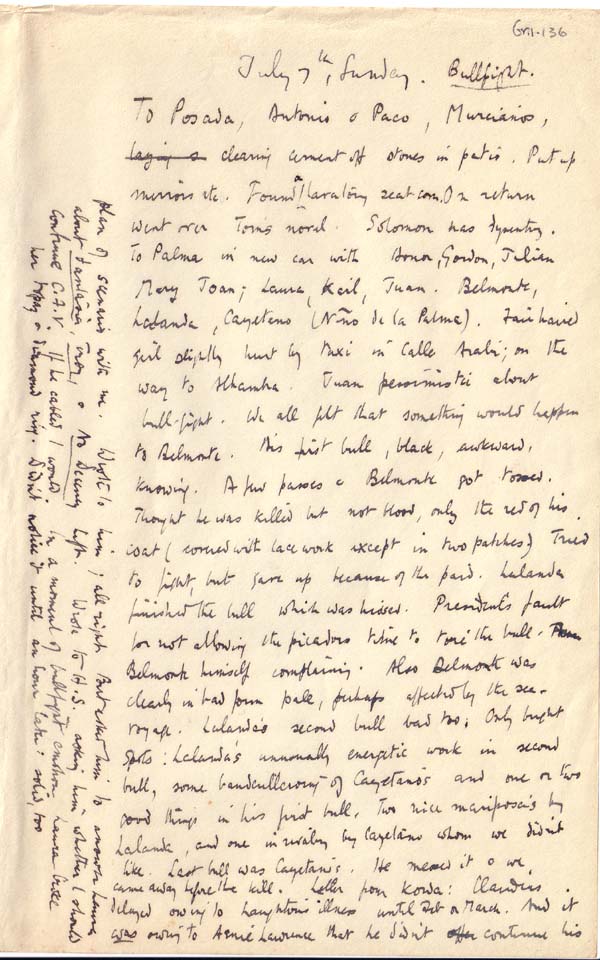 Gril-136
July 7th, Sunday. Bullfight.
To Posada, Antonio & Paco, Murcianos,
laying s clearing cement off stones in patio. Put up
mirrors etc. Found a lavatory seat con. On return
went over Tom's novel. Solomon has dysentry.
To Palma in new car with Honor, Gordon, Julian
Mary Joan; Laura, Karl, Juan. Belmonte,
Lalanda, Cayetano (Niño de la Palma). Fairhaired
girl slightly hurt by taxi in Calle Arabi; on the
way to Alhambra. Juan pessimistic about
bull-fight. We all felt that something would happen
to Belmonte. His first bull, black, awkward,
knowing. A few passes & Belmonte got tossed.
Thought he was killed but not blood, only the red of his
coat (covered with lacework except in two patches) Tried
to fight, but gave up because of the pain. Lalanda
finished the bull which was hissed. President's fault
for not allowing the picadors time to tire the bull.
Belmonte himself complaining. Also Belmonte was
clearly in bad form pale, perhaps affected by the sea-
voyage. Lalanda's second bull bad too. Only bright
spots: Lalanda's unusually energetic work in second
bull, some of Cayetano's and one or two
good things in his first bull. Two nice mariposas by
Lalanda, and one in rivalry by Cayetano whom we didn't
like. Last bull was Cayetano's. He messed it & we
came away before the kill. Letter from Korda: Claudius
delayed owing to Laughton's illness until Feb or March. And it
was owing to Arnie Lawrence that he didn't offer continue his
plan of scenario with me. Wrote to him; all right. But asked him to answer Laura
about & No Decency Left. Wrote to H.S. asking him whether I should
continue C.A.V. If he cabled I would. In a moment of bullfight emotion Laura broke
her topaz & diamond ring. Didn't notice it until an hour later: solid, too